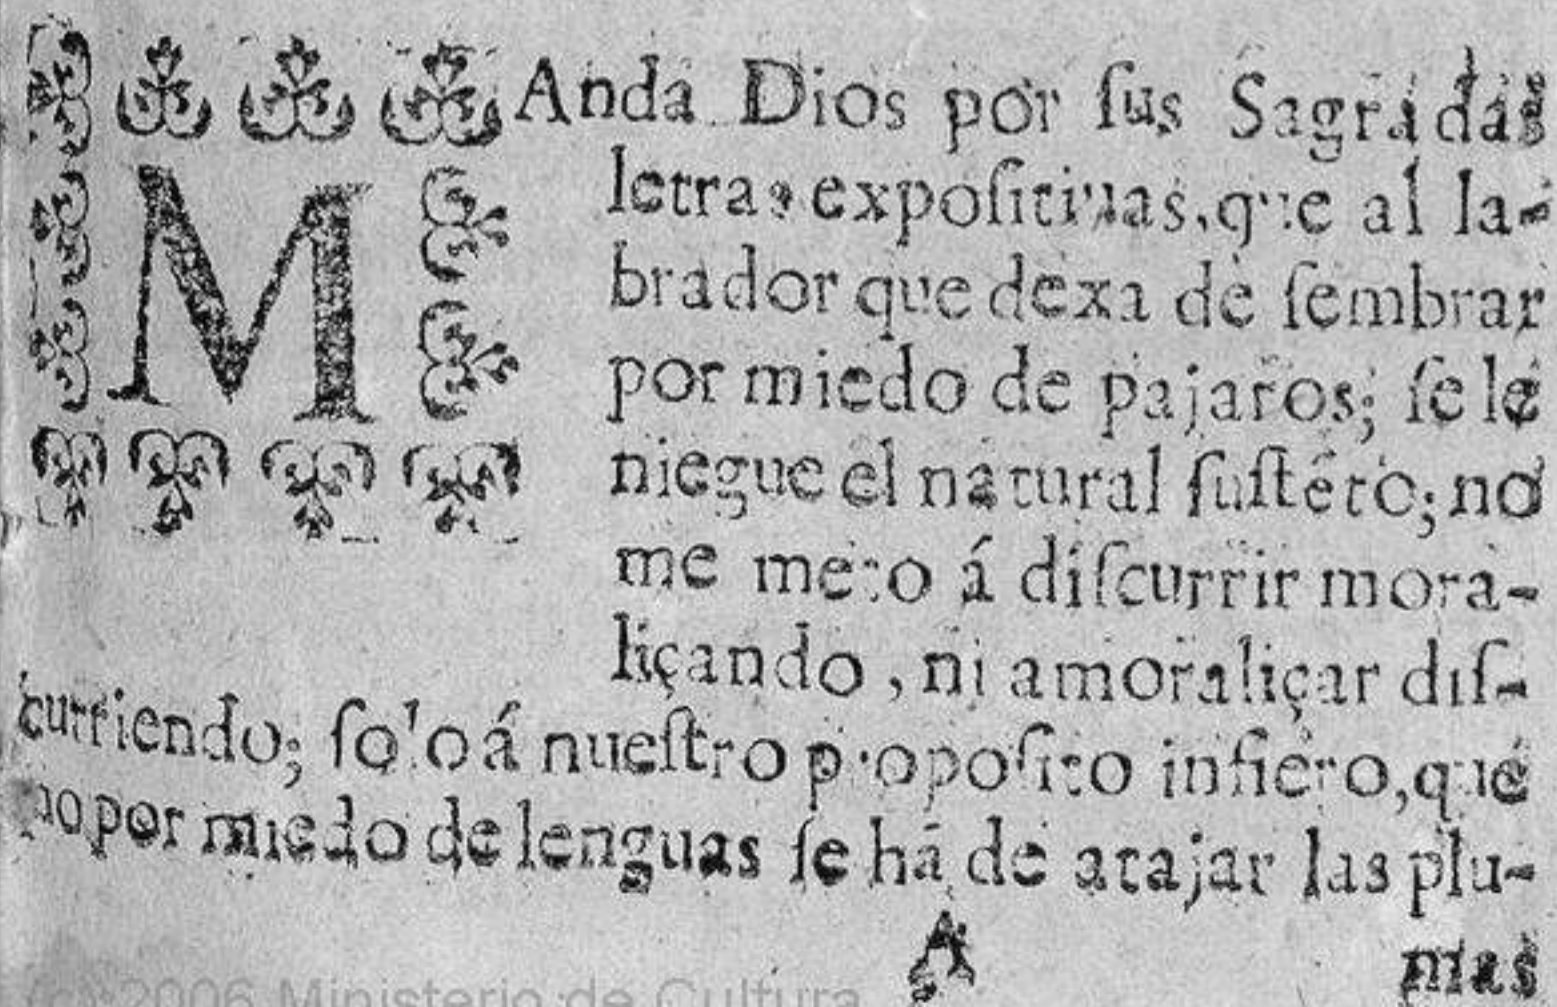 MAnda Dios por ſus Sagradas
letras expoſitiuas, que al la-
brador que dexa de ſembrar
por miedo de pajaros; ſe le
niegue el natural ſuſtẽto; no
me meto á diſcurrir mora-
liçando, ni amoraliçar diſ-
curriendo; ſolo á nueſtro propoſito infiero, que
no por miedo de lenguas ſe há de atajar las plu-
A mas
(c) 2006 Ministerio de Cultura